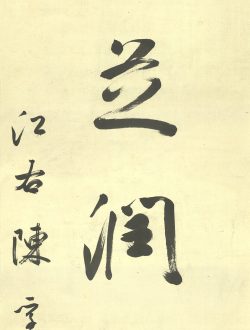 芝潤
江右陳孚